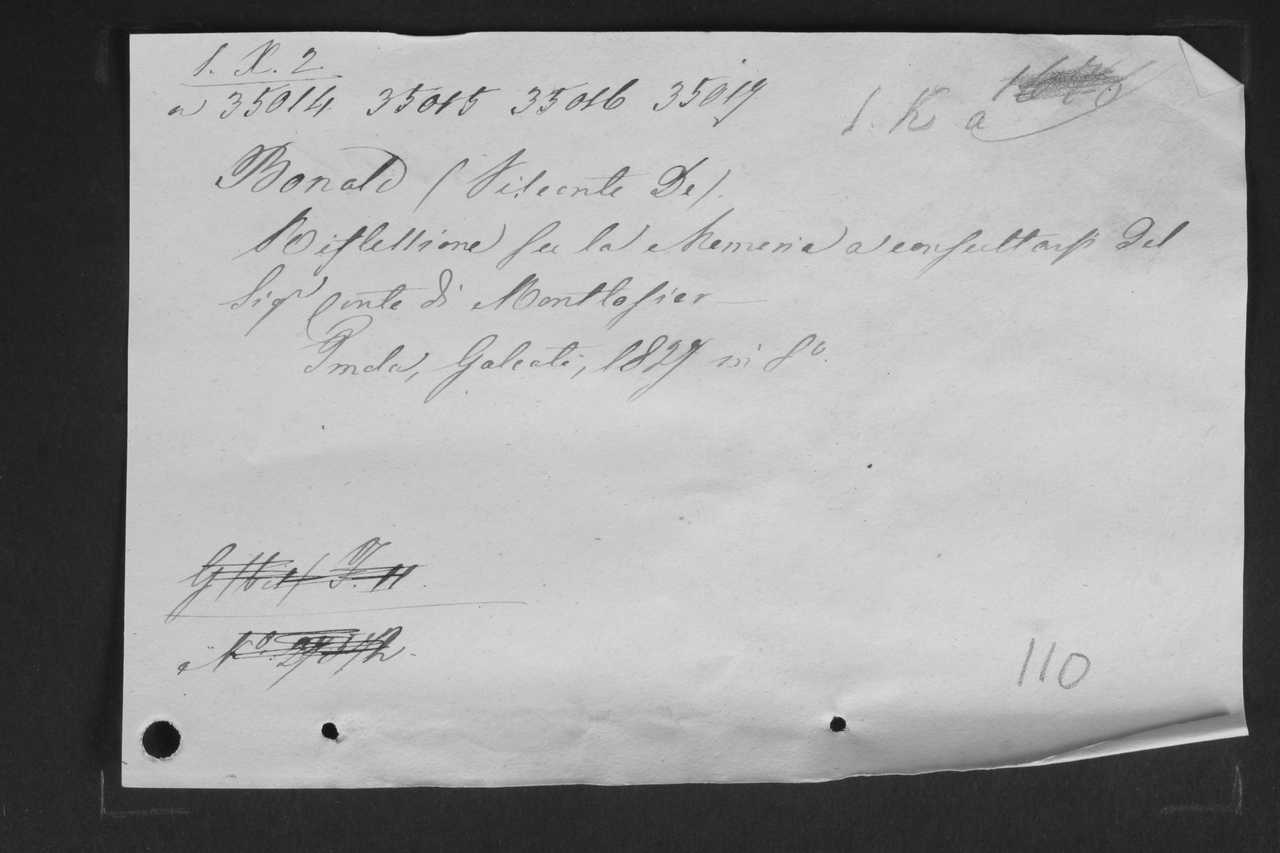 1. X. 2
a 35014 35015 35016 35017
1. K a
Bonald (Visconte De).
Riflessione su la Memoria a consultarsi del
Sigr Conte di Montlosier
Imola, Galeati, 1827 in 8o.
No.
110